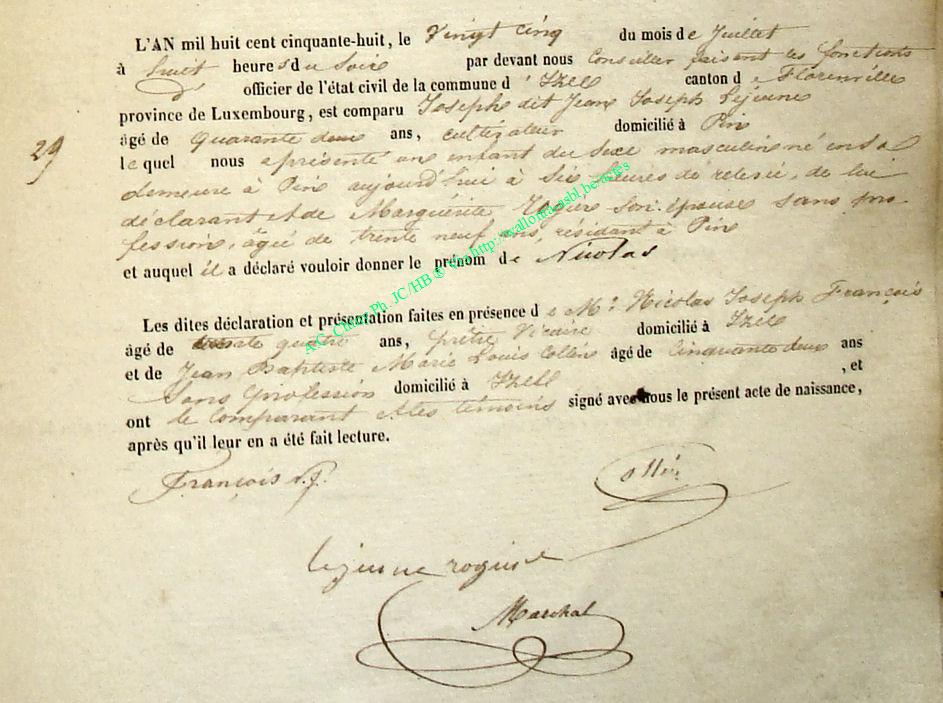 L'AN mil huit cent cinquante-huit, le Vingt cinq du mois de Juillet
à huit heures du Soir par devant nous Conseiller faisant les fonctions
d' officier de l'état civil de la commune d'Izell canton de Florenville
province de Luxembourg, est comparu Joseph dit Jean Joseph Lejeune
âgé de quarante deux ans, cultivateur domicilié à Pin
29
lequel nous a présenté un enfant du Sexe masculin né en sa
demeure à Pin aujourd'hui à six heures de relevée, de lui
déclarant et de Marguérite son épouse sans pro-
fession, âgée de trente neuf ans, résidant à Pin
et auquel il a déclaré vouloir donner le prénom de Nicolas
A.C. Chiny Ph. JC/HB © via http://wallonia-asbl.be/actes
Les dites déclaration et présentation faites en présence de Mr Nicolas Joseph François
âgé de quatre ans, prêtre Vicaire domicilié à Izel
et de Jean Baptiste Marie Louis Collin âgé de Cinquante deux ans
Sans profession domicilié à Izell , et
ont le Comparant et les témoins signé avec nous le présent acte de naissance,
après qu'il leur en a été fait lecture.
François n.j.
Collin
lejeune
Marchal